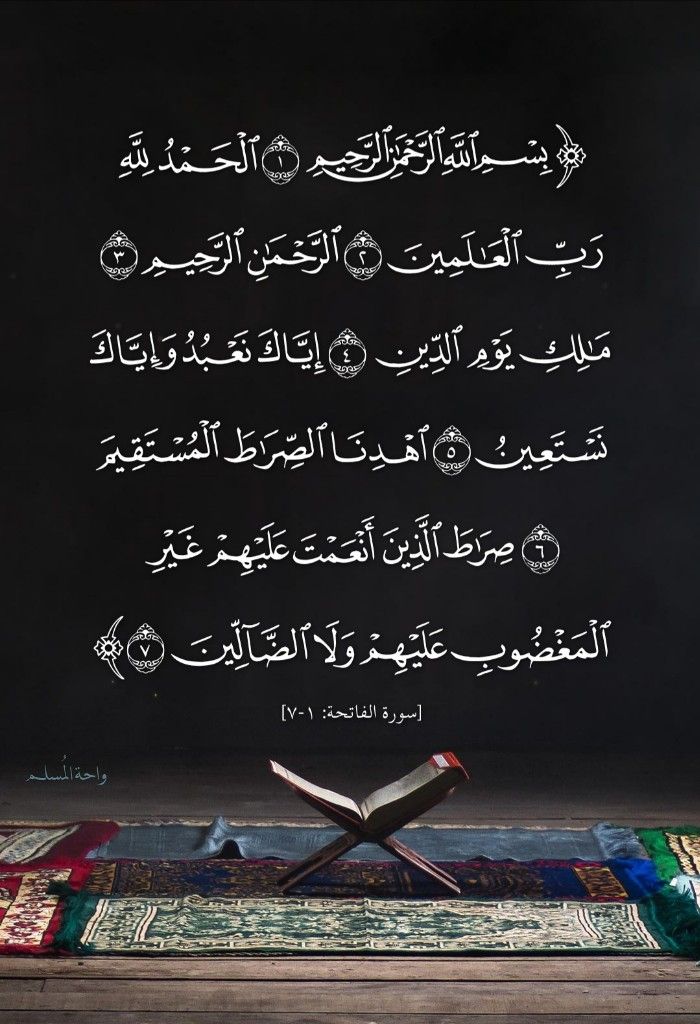 ﴿بِسْمِ ٱللَّهِ ٱلرَّحْمَٰنِ ٱلرَّحِيمِ ١ ٱلْحَمْدُ لِلَّهِ
رَبِّ ٱلْعَٰلَمِينَ ٢ ٱلرَّحْمَٰنِ ٱلرَّحِيمِ ٣
مَٰلِكِ يَوْمِ ٱلدِّينِ ٤ إِيَّاكَ نَعْبُدُ وَإِيَّاكَ
نَسْتَعِينُ ٥ ٱهْدِنَا ٱلصِّرَٰطَ ٱلْمُسْتَقِيمَ
٦ صِرَٰطَ ٱلَّذِينَ أَنْعَمْتَ عَلَيْهِمْ غَيْرِ
ٱلْمَغْضُوبِ عَلَيْهِمْ وَلَا ٱلضَّآلِّينَ ٧﴾
[سورة الفاتحة: ١-٧]
واحة المُسلم